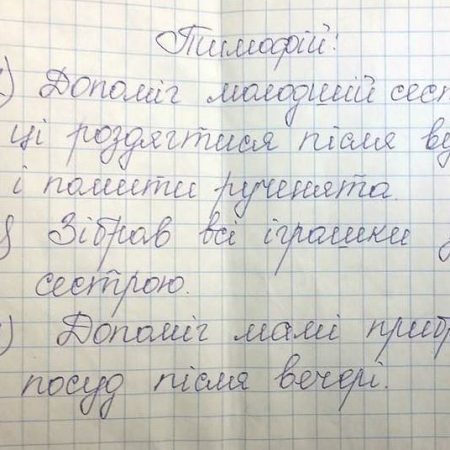 Тимофій:
) Допоміг молодшій сест
ці роздягтися після ву
і помити рученята.
Зібрав всі іграшки з
сестрою.
) Допоміг мамі прибр
посуд після вечері.